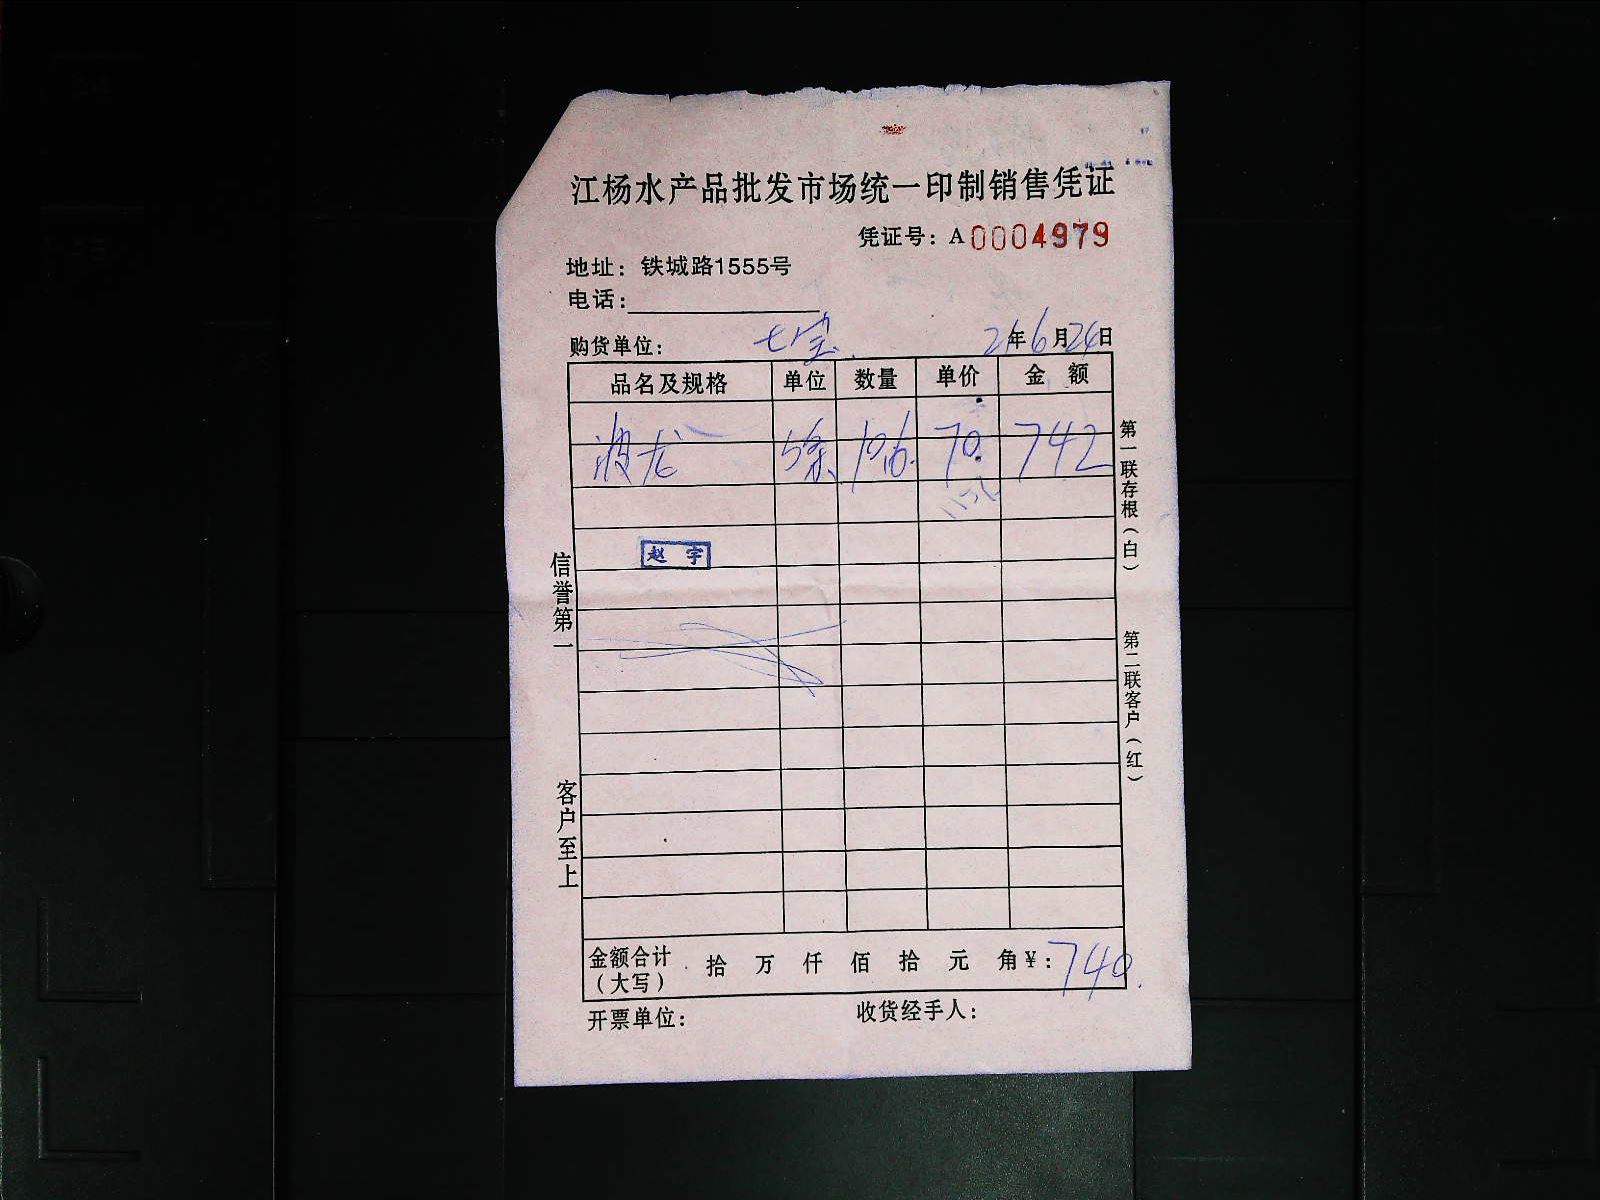 江杨水产品批发市场统一印制销售凭证
凭证号：A0004979
地址：铁城路1555号
电话：
购货单位：七宝 21年6月24日
品名及规格 单位 数量 单价 金 额
波龙 5条 10.6 70. 742
赵 宇
金额合计（大写） 拾 万 仟 佰 拾 元 角 ¥：740.
开票单位： 收货经手人：
信誉第一 客户至上
第一联存根（白） 第二联客户（红）